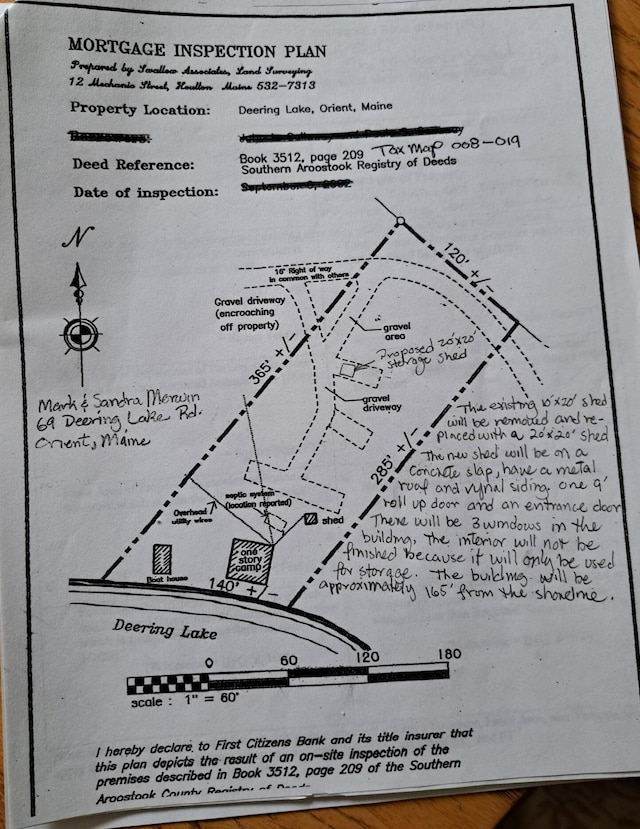 MORTGAGE INSPECTION PLAN
Prepared by Swallow Associates, Land Surveying
12 Mechanic Street, Houlton Maine 532-7313
Property Location: Deering Lake, Orient, Maine
Deed Reference: Book 3512, page 209 Tax Map 008-019
Southern Aroostook Registry of Deeds
Date of inspection:
N
120' +/-
16' Right of way
in common with others
Gravel driveway
(encroaching
off property)
gravel
area
365' +/-
Proposed 20'x20'
storage shed
gravel
driveway
Mark & Sandra Merwin
69 Deering Lake Rd.
Orient, Maine
The existing 10'x20' shed
will be removed and re-
placed with a 20'x20' shed
The new shed will be on a
concrete slap, have a metal
roof and vynal siding, one 9'
roll up door and an entrance door
There will be 3 windows in the
building, the interior will not be
finished because it will only be used
for storage. The building will be
approximately 165' from the shoreline.
285' +/-
septic system
(location reported)
Overhead
utility wires
shed
one
story
camp
Boat house
140' +/-
Deering Lake
0 60 120 180
scale : 1" = 60'
I hereby declare to First Citizens Bank and its title insurer that
this plan depicts the result of an on-site inspection of the
premises described in Book 3512, page 209 of the Southern
Aroostook County Registry of Deeds